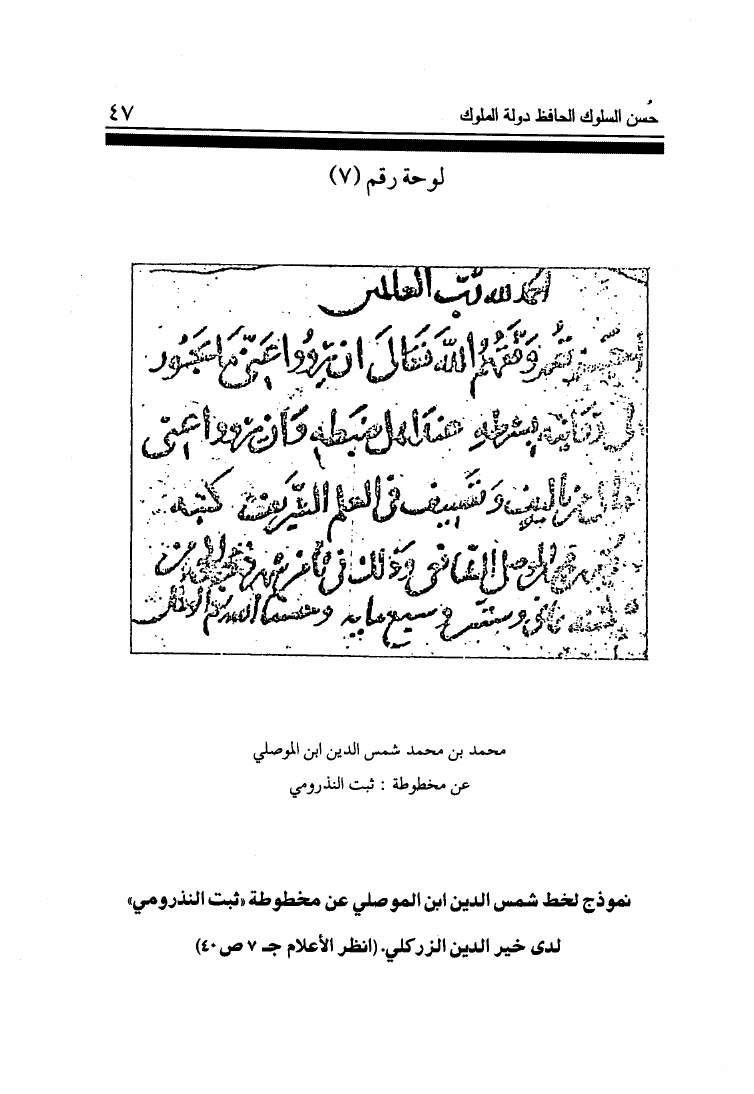 حُسن السلوك الحافظ دولة الملوك ٤٧
لوحة رقم (٧)
الحمد لله رب العالمين
وفقهم الله تعالى ان يرووا عني ما يجوز
بشرطه عند اهل ضبطه وان يرووا عني
تاليف وتصنيف في العلم الشريف كتبه
محمد الموصلي الشافعي وذلك في
وستين وسبع مايه
محمد بن محمد شمس الدين ابن الموصلي
عن مخطوطة : ثبت النذرومي
نموذج لخط شمس الدين ابن الموصلي عن مخطوطة «ثبت النذرومي»
لدى خير الدين الزركلي. (انظر الأعلام جـ ٧ ص ٤٠)